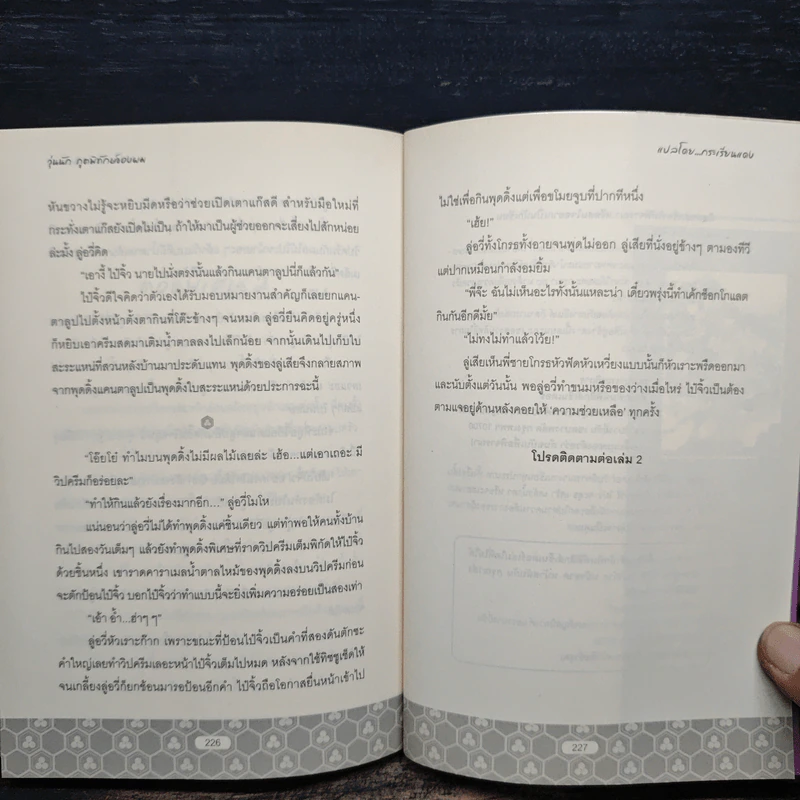 วุ่นนัก ภูตพิทักษ์จอมพล
หันขวางไม่รู้จะหยิบมีดหรือว่าช่วยเปิดเตาแก๊สดี สำหรับมือใหม่ที่
กระทั่งเตาแก๊สยังเปิดไม่เป็น ถ้าให้มาเป็นผู้ช่วยออกจะเสี่ยงไปสักหน่อย
ล่ะมั้ง ลู่อวี่คิด
"เอางี้ ไป๋จิ้ว นายไปนั่งตรงนั้นแล้วกินแคนตาลูปนี่ก็แล้วกัน"
ไป๋จิ้วดีใจคิดว่าตัวเองได้รับมอบหมายงานสำคัญก็เลยยกแคน-
ตาลูปไปตั้งหน้าตั้งตากินที่โต๊ะข้างๆ จนหมด ลู่อวี่ยืนคิดอยู่ครู่หนึ่ง
ก็หยิบเอาครีมสดมาเติมน้ำตาลลงไปเล็กน้อย จากนั้นเดินไปเก็บใบ
สะระแหน่ที่สวนหลังบ้านมาประดับแทน พุดดิ้งของลู่เสียจึงกลายสภาพ
จากพุดดิ้งแคนตาลูปเป็นพุดดิ้งใบสะระแหน่ด้วยประการฉะนี้
"โอ๊ยโย่ ทำไมบนพุดดิ้งไม่มีผลไม้เลยล่ะ เฮ้อ...แต่เอาเถอะ มี
วิปครีมก็อร่อยละ"
"ทำให้กินแล้วยังเรื่องมากอีก..." ลู่อวี่โมโห
แน่นอนว่าลู่อวี่ไม่ได้ทำพุดดิ้งแค่ชิ้นเดียว แต่ทำพอให้คนทั้งบ้าน
กินไปสองวันเต็มๆ แล้วยังทำพุดดิ้งพิเศษที่ราดวิปครีมเต็มพิกัดให้ไป๋จิ้ว
ด้วยชิ้นหนึ่ง เขาราดคาราเมลน้ำตาลไหม้ของพุดดิ้งลงบนวิปครีมก่อน
จะตักป้อนไป๋จิ้ว บอกไป๋จิ้วว่าทำแบบนี้จะยิ่งเพิ่มความอร่อยเป็นสองเท่า
"เอ้า อ้ำ...ฮ่าๆ ๆ"
ลู่อวี่หัวเราะก๊าก เพราะขณะที่ป้อนไป๋จิ้วเป็นคำที่สองดันตักซะ
คำใหญ่เลยทำวิปครีมเลอะหน้าไป๋จิ้วเต็มไปหมด หลังจากใช้ทิชชูเช็ดให้
จนเกลี้ยงลู่อวี่ก็ยกช้อนมารอป้อนอีกคำ ไป๋จิ้วถือโอกาสยื่นหน้าเข้าไป
226
แปลโดย...กระเรียนแดง
ไม่ใช่เพื่อกินพุดดิ้งแต่เพื่อขโมยจูบที่ปากทีหนึ่ง
"เฮ้ย!"
ลู่อวี่ทั้งโกรธทั้งอายจนพูดไม่ออก ลู่เสียที่นั่งอยู่ข้างๆ ตามองทีวี
แต่ปากเหมือนกำลังอมยิ้ม
"พี่จ๊ะ ฉันไม่เห็นอะไรทั้งนั้นแหละน่า เดี๋ยวพรุ่งนี้ทำเค้กช็อกโกแลต
กินกันอีกดีมั้ย"
"ไม่ทงไม่ทำแล้วโว้ย!"
ลู่เสียเห็นพี่ชายโกรธหัวฟัดหัวเหวี่ยงแบบนั้นก็หัวเราะพรืดออกมา
และนับตั้งแต่วันนั้น พอลู่อวี่ทำขนมหรือของว่างเมื่อไหร่ ไป๋จิ้วเป็นต้อง
ตามแจอยู่ด้านหลังคอยให้ 'ความช่วยเหลือ' ทุกครั้ง
โปรดติดตามต่อเล่ม 2
227